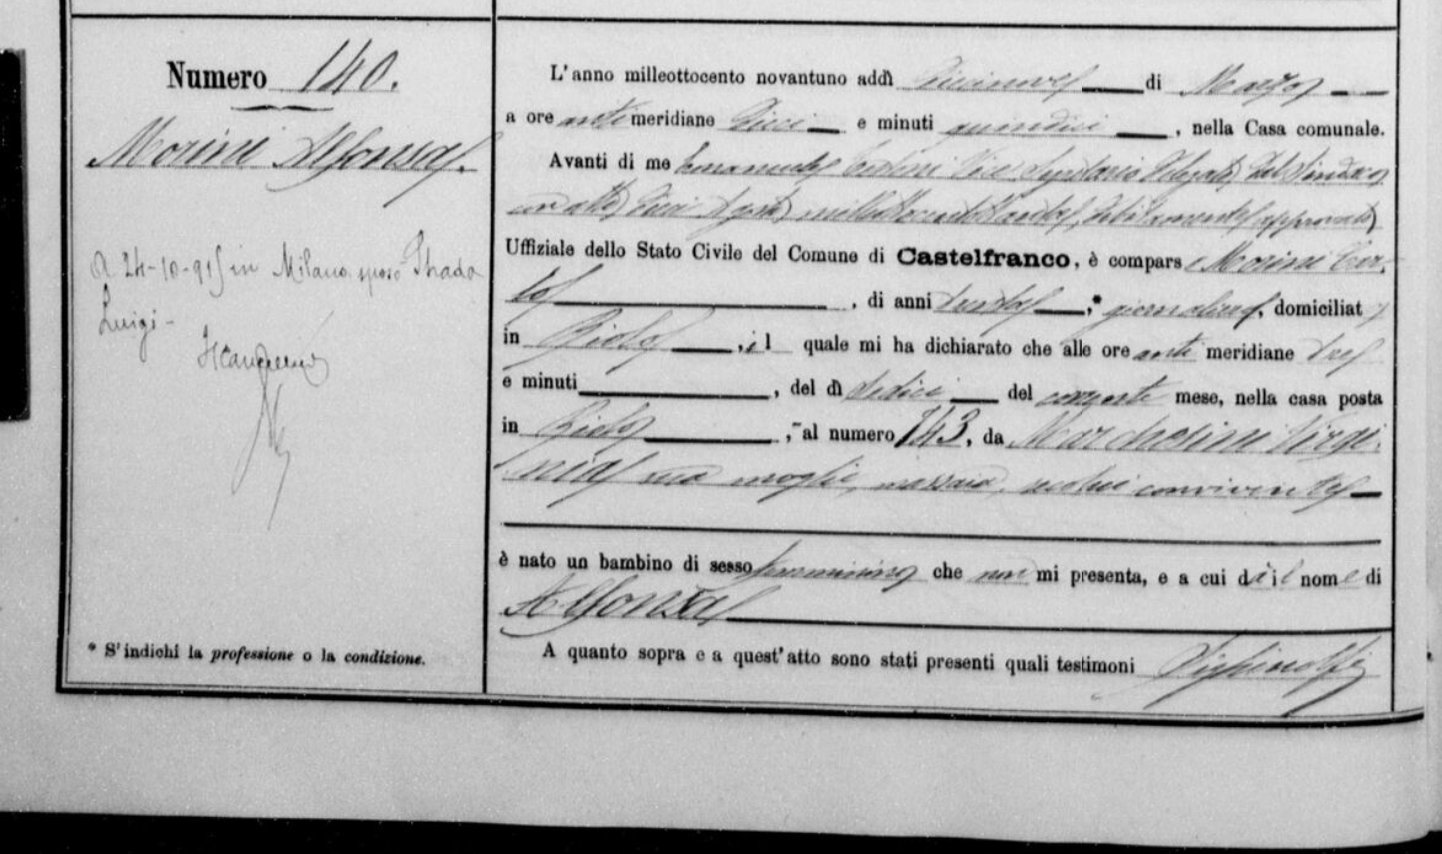 Numero 140.
Morini Alfonsa.
A 24-10-915 in Milano sposò Strada
Luigi-
* S'indichi la professione o la condizione.
L'anno milleottocento novantuno addì diciannove di Marzo
a ore antimeridiane dieci e minuti quindici, nella Casa comunale.
Avanti di me Emanuele Vice Segretario Delegato dal Sindaco
con atto dieci Agosto milleottocentottanta debitamente approvato
Uffiziale dello Stato Civile del Comune di Castelfranco, è comparso Morini Car-
lo, di anni trenta,* giornaliero, domiciliato
in Riolo, il quale mi ha dichiarato che alle ore anti meridiane tre
e minuti, del dì sedici del corrente mese, nella casa posta
in Riolo, al numero 143, da Marchesini Virgi-
nia sua moglie, massaia, seco lui convivente
è nato un bambino di sesso femminino che non mi presenta, e a cui dà il nome di
Alfonsa
A quanto sopra e a quest'atto sono stati presenti quali testimoni Sighinolfi